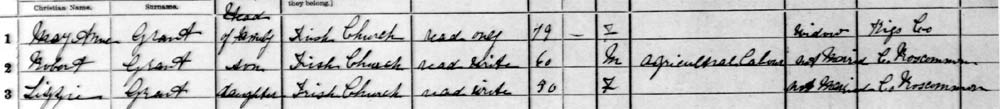 Christian Name. Surname. they belong.]
Head
1 Mary Anne Grant of family Irish Church read only 79 — F widow Co
2 Robert Grant son Irish Church read write 60 M Agricultural Labour not Married C. Roscommon
3 Lizzie Grant daughter Irish Church read write 30 F not Married C. Roscommon